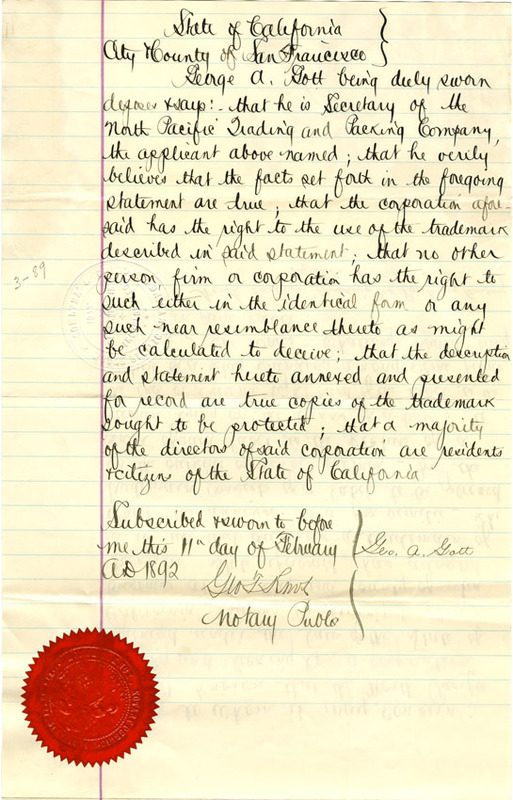 State of California
City & County of San Francisco
George A. Gott being duly sworn
deposes & says:- that he is Secretary of the
North Pacific Trading and Packing Company,
the applicant above named; that he verily
believes that the facts set forth in the foregoing
statement are true; that the corporation afore-
said has the right to the use of the trademark
described in said statement; that no other
person firm or corporation has the right to
such either in the identical form or any
such near resemblance thereto as might
be calculated to deceive; that the description
and statement hereto annexed and presented
for record are true copies of the trademark
sought to be protected; that a majority
of the directors of said corporation are residents
& citizens of the State of California
Subscribed & sworn to before
me this 11th day of February
AD 1892
Geo. A. Gott
Geo T
Notary Public
3-89